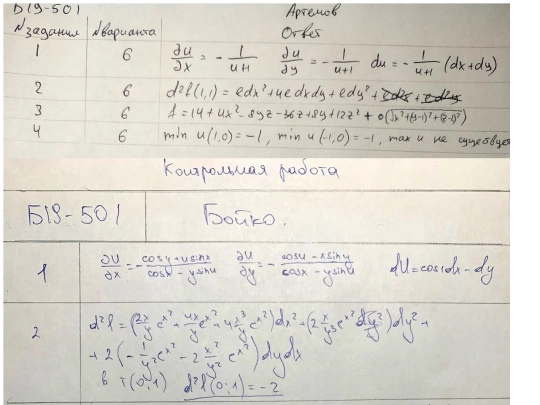 Б19-501 Артемов
№ задания № варианта Ответ
1 6 ∂u/∂x = -1/(u+1) ∂u/∂y = -1/(u+1) du = -1/(u+1) (dx+dy)
2 6 d²f(1,1) = edx²+4edxdy+edy²+
3 6 f=14+4x²-8yz-36z+8y+12z²+o(√x²+(y-1)²+(z-1)²)
4 6 min u(1,0)=-1, min u(-1,0)=-1, max u не существует
Контрольная работа
Б19-501 Бойко.
1 ∂U/∂x = -(cosy+usinx)/(cosx-ysinu) ∂U/∂y = -(cosu-xsiny)/(cosx-ysinu) dU=cos1dx-dy
2 d²f=(2x/y e^x²+4x/y e^x²+4x³/y e^x²)dx²+(2x/y³ e^x² dy²)dy²+
+2(-1/y² e^x²-2x²/y² e^x²)dydx
в т(0;1) d²f(0;1)=-2